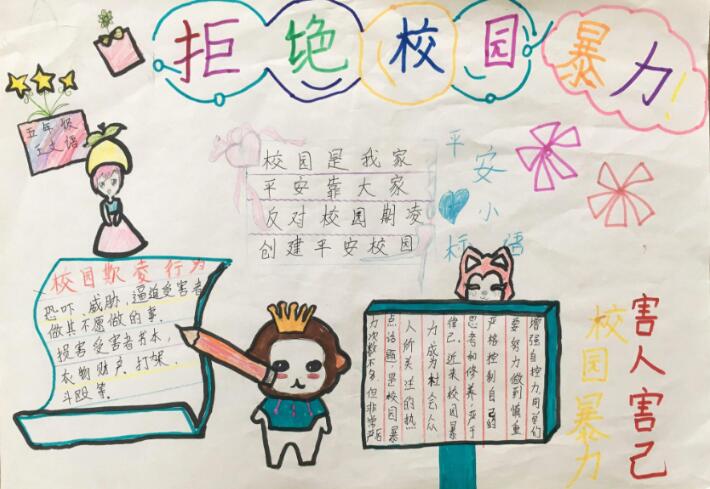 拒绝校园暴力!
五年级
平安小
标语
校园是我家
平安靠大家
反对校园欺凌
创建平安校园
校园欺凌行为
恐吓、威胁、逼迫受害者
做其不愿做的事.
损害受害者书本,
衣物财产、打架,
斗殴等.
增强自控力,同学们
要努力做到慎重
严格控制自己的
忍者和修养,严于
律己.近来校园暴
力成为社会众
人所关注的热
点话题,是校园暴
力次数不多但非常严
害人害己
校园暴力